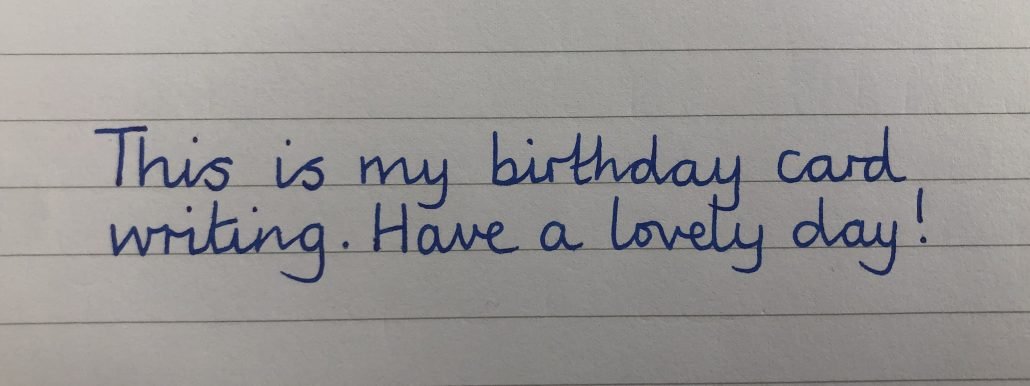 This is my birthday card
writing. Have a lovely day!